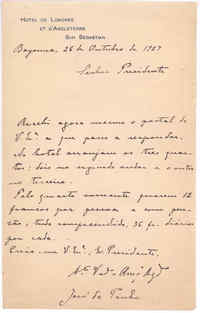 HOTEL DE LONDRES
ET D'ANGLETERRE
SAN SEBASTIAN
Bayonna, 26 de Outubro de 1907
Senhor Presidente
Recebi agora mesmo o postal de
V. Exª. a que passo a responder.
No hotel arranjam os tres quar-
tos: dois no segundo andar e o outro
no terceiro.
Pelo quarto somente querem 12
francos por pessoa e com pen-
são, tudo comprehendido, 35 fr. diarios
por cada.
Creia-me V. Exª., Sr. Presidente,
José de